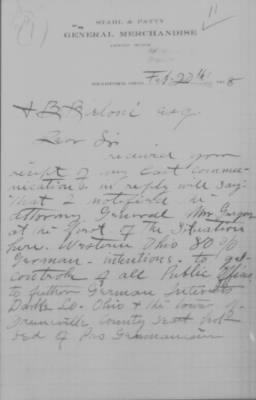 STAHL & PATTY
GENERAL MERCHANDISE
Feb 20th 8
Esq.
Dear Sir
received your
receipt of my last commu-
nication & in reply will say
that I notified
Attorney General Mr Gregory
at the first of the situation
here. Western Ohio 80 %
German - intentions to get
controle of all Public
to further German Interests
Darke Co. Ohio & the town of
Greenville County seat
of Pro Germanism